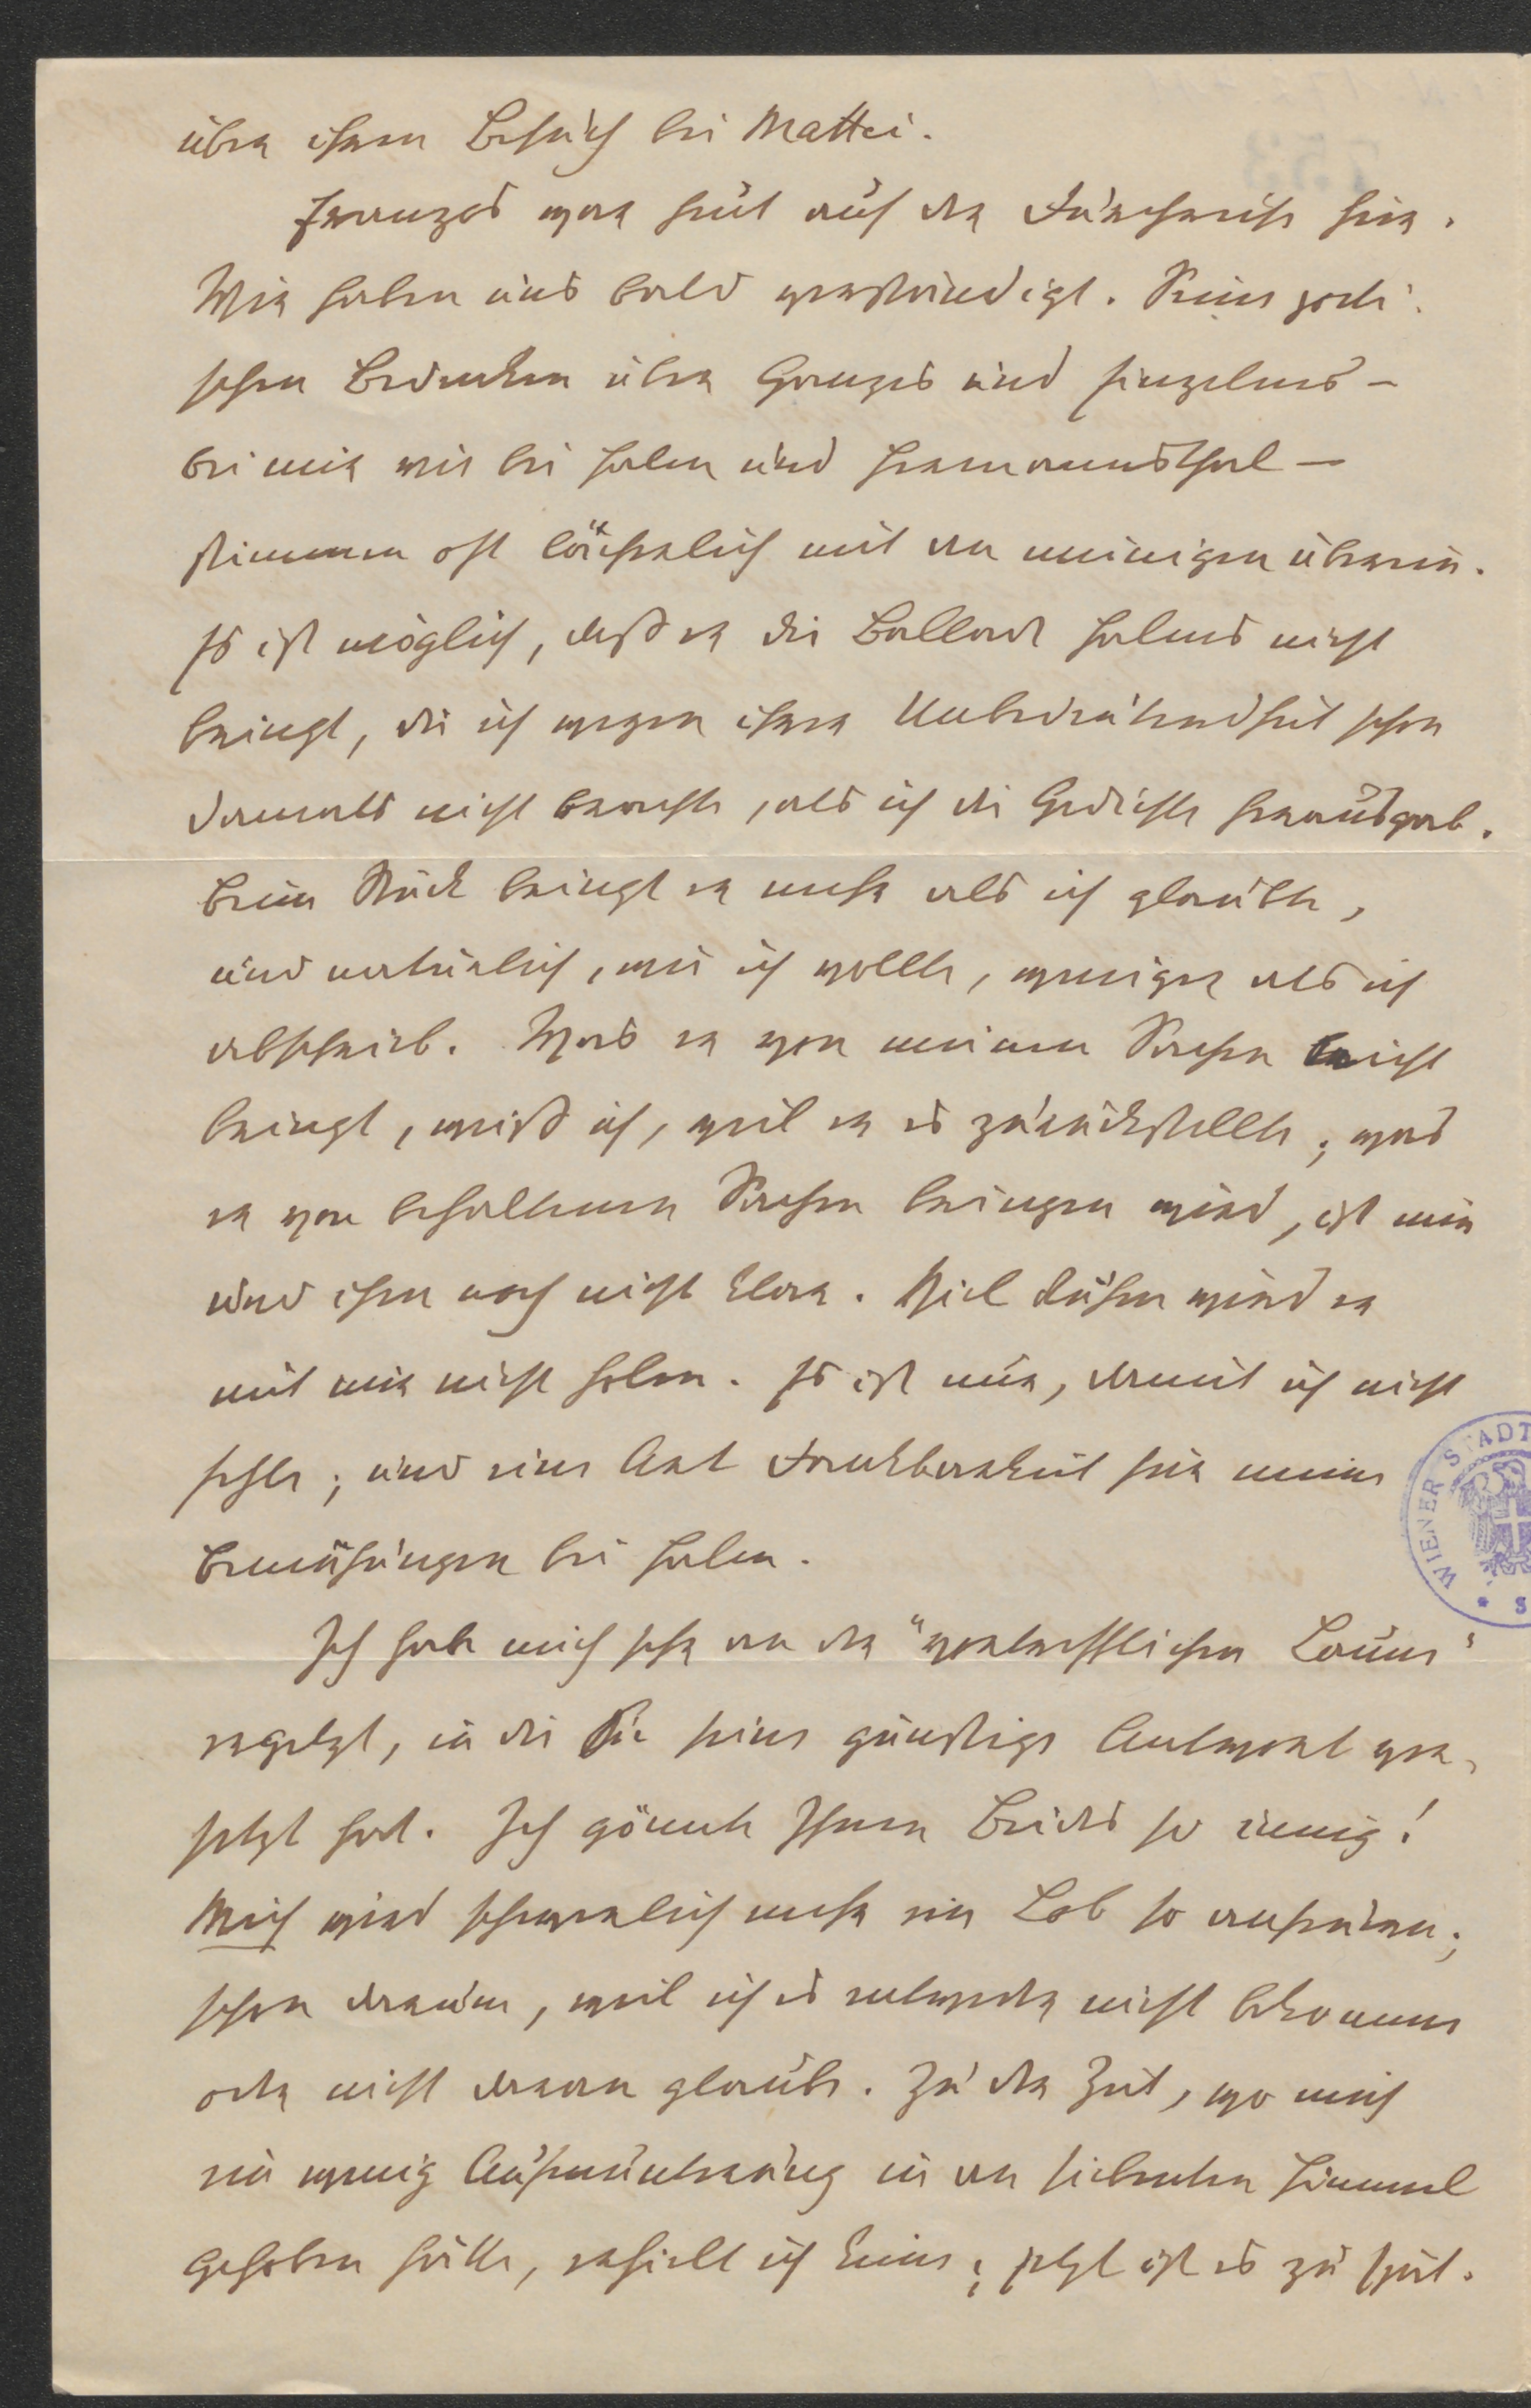 über ihren Besuch bei Mattei.
Franzos war heut auf der Durchreise hier.
Wir haben uns bald verständigt. Seine poeti-
schen Bedenken über Ganzes und Einzelnes –
bei mir wie bei Halm und Hermannsthal –
stimmen oft lächerlich mit den meinigen überein.
Es ist möglich, daß er die Ballade Halms nicht
bringt, die ich wegen ihrer Unbedeutendheit schon
damals nicht brachte, als ich die Gedichte herausgab.
Beim Stück bringt er mehr als ich glaubte,
und natürlich, wie ich wollte, weniger als ich
abschrieb. Was er von meinen Sachen nicht
bringt, weiß ich, weil er es zurückstellte; was
er von behaltenen Sachen bringen wird, ist mir
und ihm noch nicht klar. Viel Ruhm wird er
mit mir nicht holen. Es ist nur, damit ich nicht
fehle; und eine Art Dankbarkeit für meine
Bemühungen bei Halm.
Ich habe mich sehr an der "vortrefflichen Laune"
ergetzt, in die Sie seine günstige Antwort ver-
setzt hat. Ich gönnte Ihnen Beides so innig!
Mich wird schwerlich mehr ein Lob so anfeuern;
schon darum, weil ich es entweder nicht bekomme
oder nicht daran glaube. Zu der Zeit, wo mich
ein wenig Aufmunterung in den siebenten Himmel
gehoben hätte, erhielt ich keine; jetzt ist es zu spät.
WIENER STADT